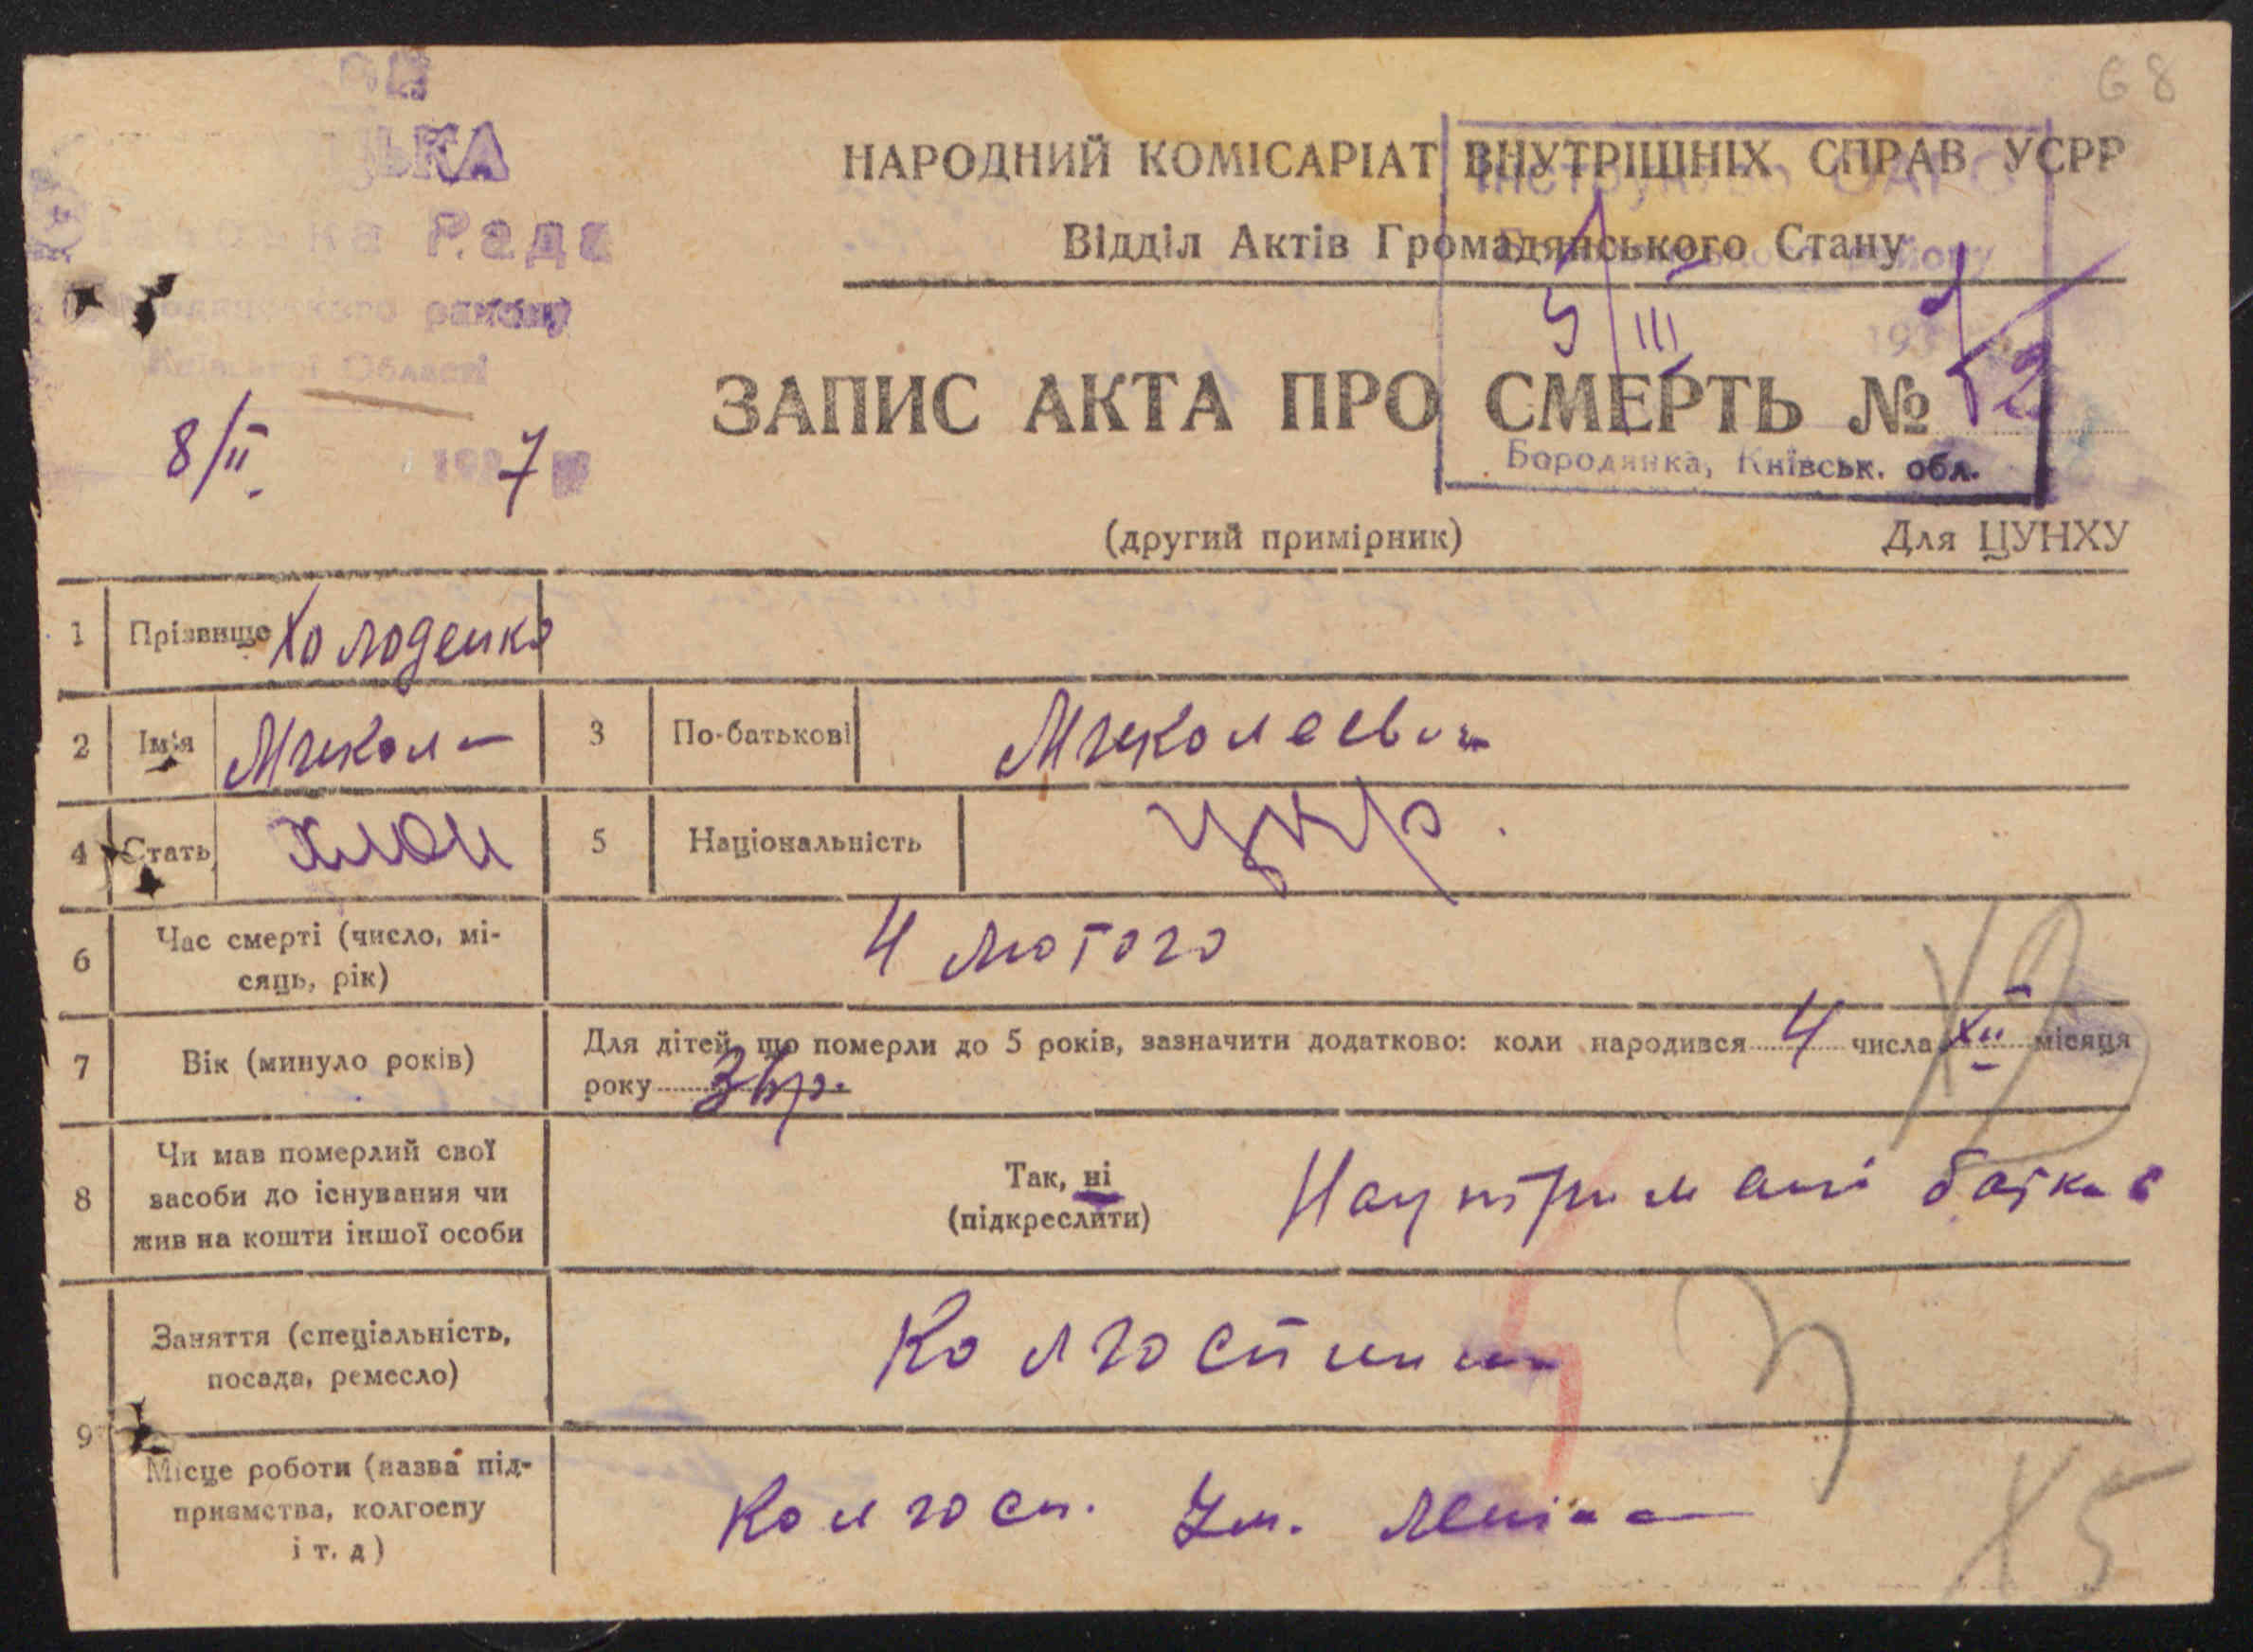 68
ЬКА
Рада
району
Київської Області
8/II 193 7
НАРОДНИЙ КОМІСАРІАТ ВНУТРІШНІХ СПРАВ УСРР
Відділ Актів Громадянського Стану
5/III
193
ЗАПИС АКТА ПРО СМЕРТЬ № 12
Бородянка, Київськ. обл.
(другий примірник) Для ЦУНХУ
1 Прізвище Холоденко
2 Ім'я Микола 3 По-батькові Миколаевич
4 Стать хлоп 5 Національність укр.
6 Час смерті (число, мі-
сяць, рік) 4 лютого
7 Вік (минуло років) Для дітей, що померли до 5 років, зазначити додатково: коли народився 4 числа XII місяця
року 36 р.
8 Чи мав померлий свої
засоби до існування чи
жив на кошти іншої особи
Так, ні
(підкреслити)
На утримані батьків
9 Заняття (спеціальність,
посада, ремесло) Колгоспник
Місце роботи (назва під-
приємства, колгоспу
і т. д) Колгосп. Ім. Леніна
X5